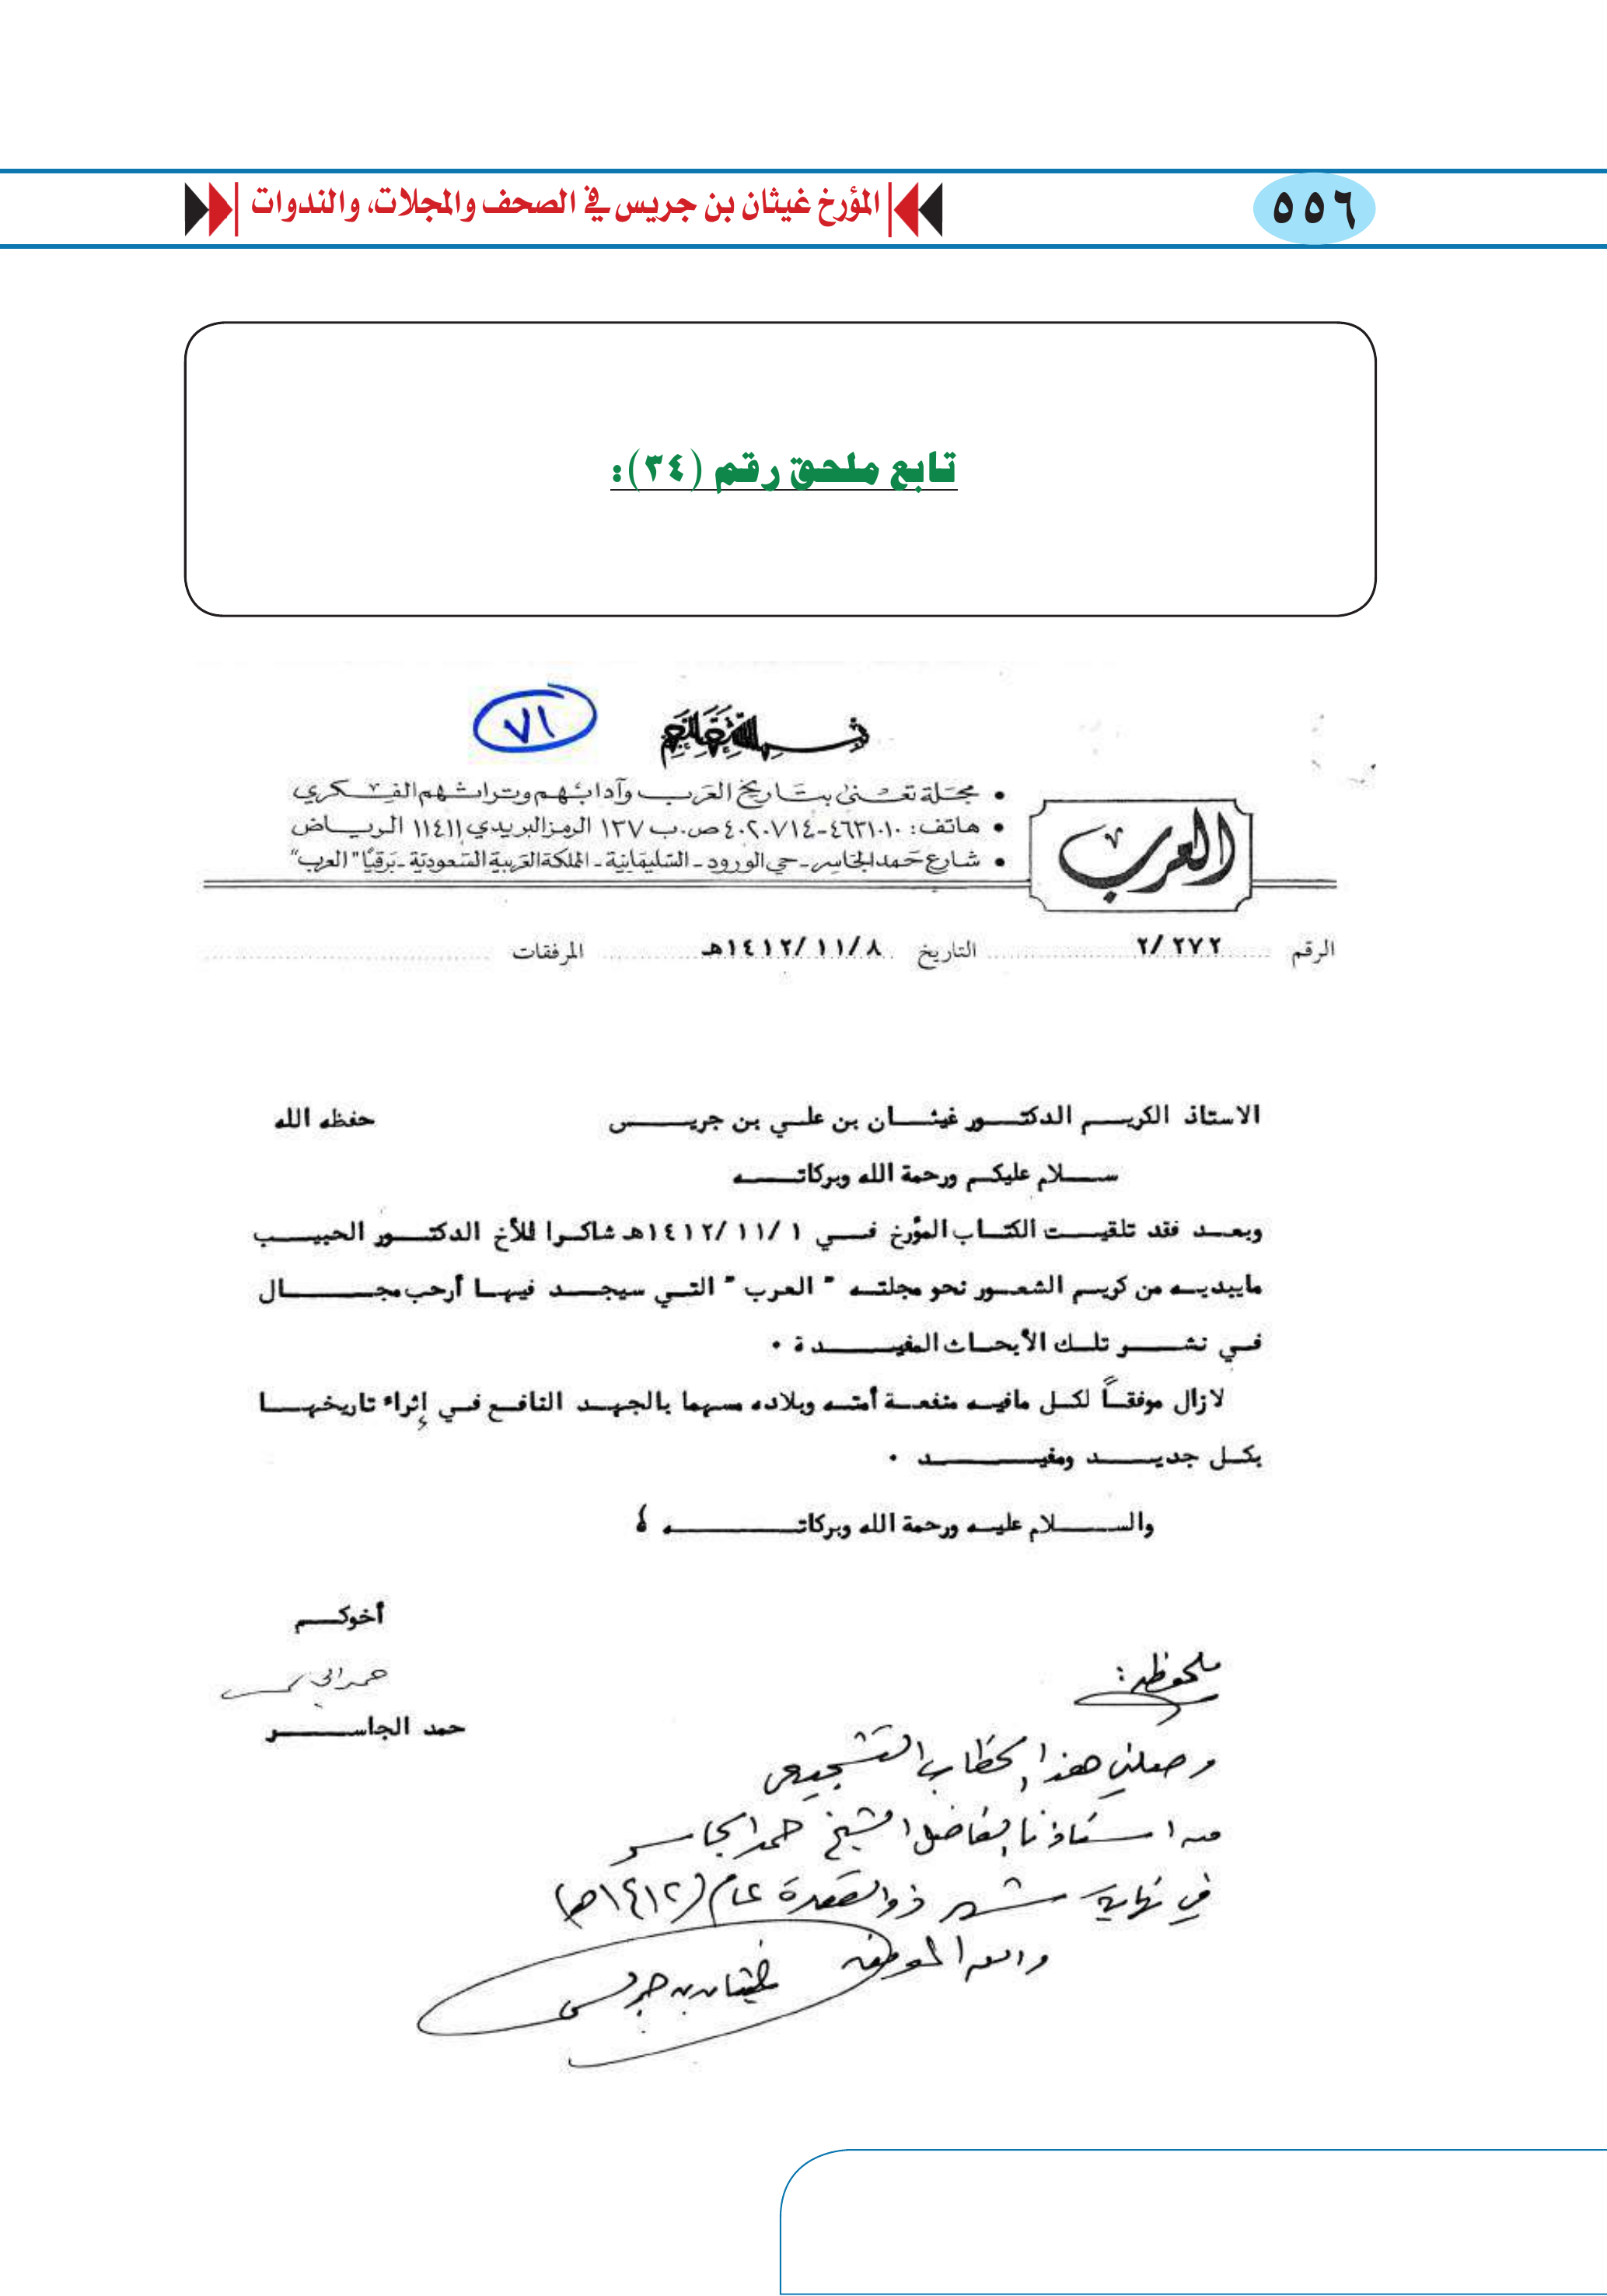 ٥٥٦
المؤرخ غيثان بن جريس في الصحف والمجلات، والندوات
تابع ملحق رقم (٣٤):
٧١
بسم الله الرحمن الرحيم
• مجلة تعنى بتاريخ العرب وآدابهم وتراثهم الفكري
• هاتف: ٤٦٣١٠١٠-٤٠٢٠٧١٤ ص.ب ١٣٧ الرمز البريدي ١١٤١١ الرياض
• شارع حمد الجاسر - حي الورود - السليمانية - المملكة العربية السعودية - برقيًا "العرب"
العرب
الرقم ٢/٢٧٢ التاريخ ١٤١٢/١١/٨هـ المرفقات
الاستاذ الكريم الدكتور غيثان بن علي بن جريس حفظه الله
سلام عليكم ورحمة الله وبركاته
وبعد فقد تلقيت الكتاب المؤرخ في ١٤١٢/١١/١هـ شاكرا للأخ الدكتور الحبيب
مايبديه من كريم الشعور نحو مجلته " العرب " التي سيجد فيها أرحب مجال
في نشر تلك الأبحاث المفيدة .
لازال موفقاً لكل مافيه منفعة أمته وبلاده مسهما بالجهد النافع في إثراء تاريخها
بكل جديد ومفيد .
والسلام عليه ورحمة الله وبركاته
أخوكم
حمد الجاسر
حمد الجاسر
ملحوظة:
وصلني هذا الخطاب التشجيعي
من استاذنا الفاضل الشيخ حمد الجاسر
في نهاية شهر ذو القعدة عام (١٤١٢هـ)
والله الموفق
غيثان بن جريس